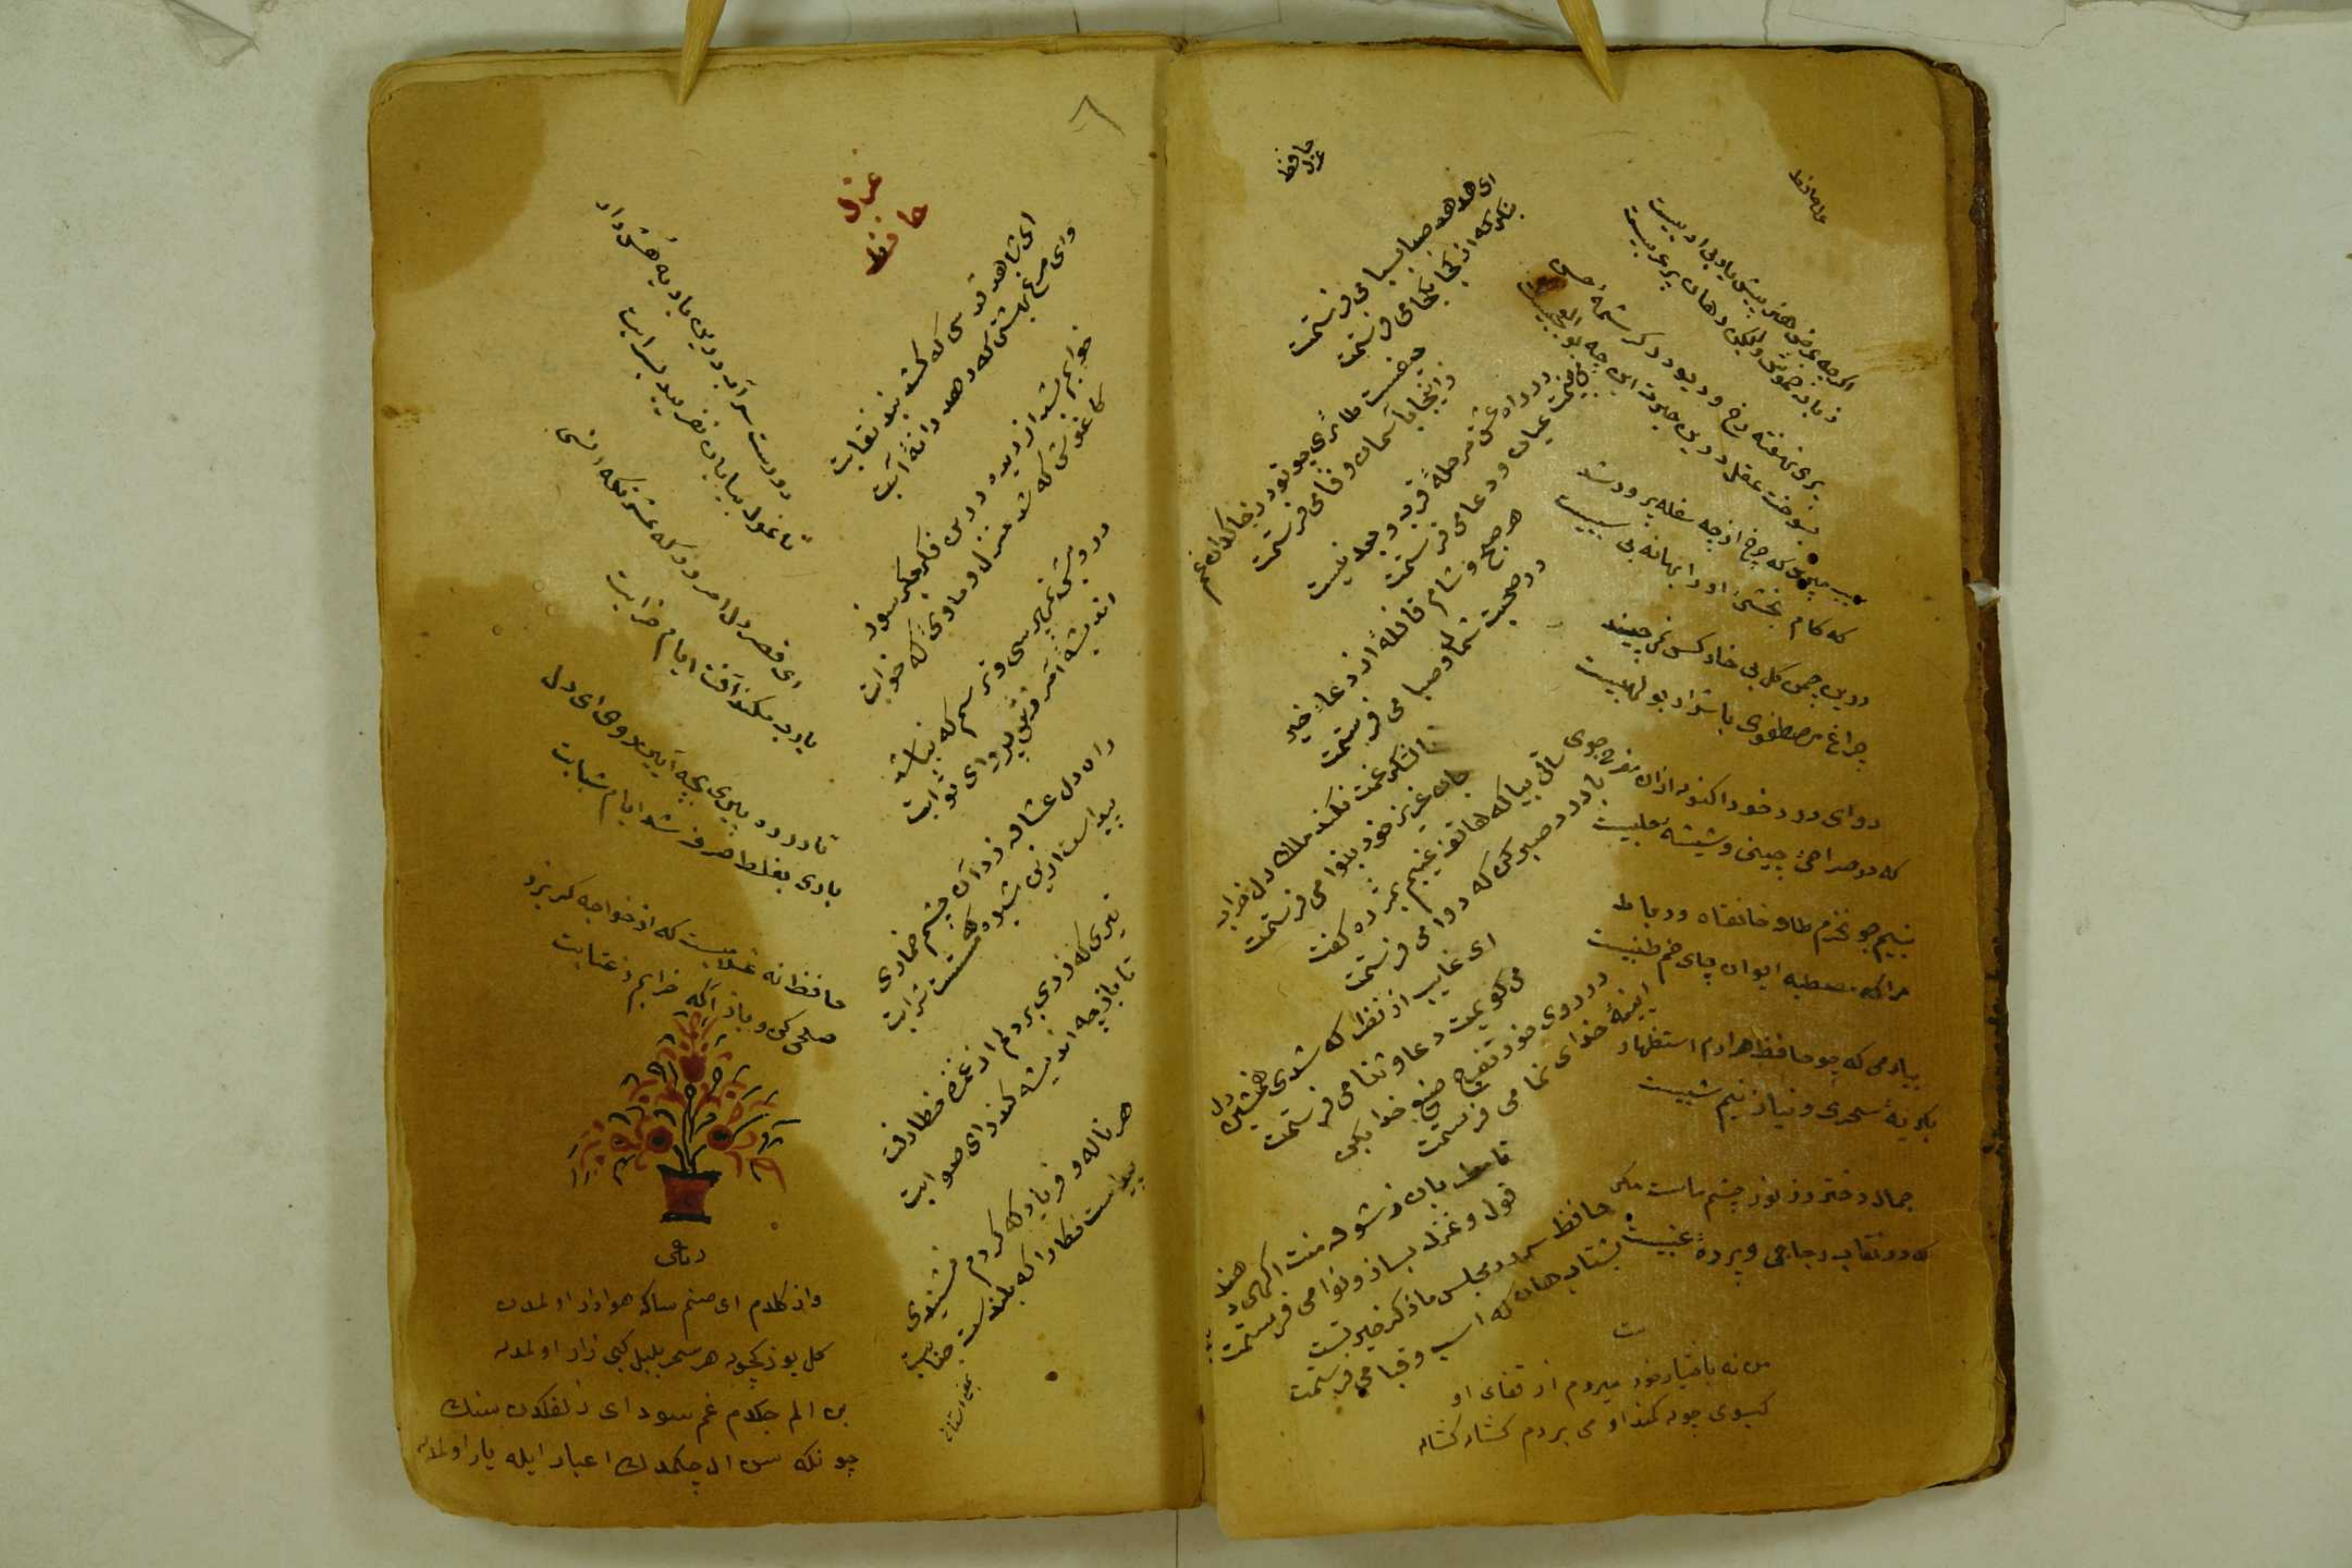 حافظ
اگرچه عرض هنر پیش یار بی ادبیست
زبان خموش ولیکن دهان پر عربیست
پری نهفته رخ و دیو در کرشمهٔ
بسوخت عقل ز حیرت این چه بو العجبیست
مپرس که چرخ از چه سفله پرور شد
که کام بخشئ او را بهانه بی سببیست
درین چمن گل بی خار کس نمی چیند
چراغ مصطفوی با شرار بو لهبیست
دوای درد خود اکنون ازان مفرح جوی
که در صراحئ چینی و شیشهٔ حلبیست
بنیم جو نخرم طاق خانقاه و رباط
مرا که مصطبه ایوان و پای خم طنبیست
بیار می که چو حافظ هزارم استظهار
بکریهٔ سحری و نیاز نیم شبیست
جمال دختر رز نور چشم ماست مکر
که در نقاب زجاجی و پردهٔ عنبیست
من نه باختیار خود میروم از قفای او
کیسوی چون کمند او می بردم کشان کشان
غزل حافظ
ای هدهد صبا بسبا می فرستمت
بنکر که از کجا بکجا می فرستمت
حیفست طائری چو تو در خاکدان غم
زاینجا بآسمان وفا می فرستمت
در راه عشق مرحلهٔ قرب و بعد نیست
می بینمت عیان و دعا می فرستمت
هر صبح و شام قافلهٔ از دعاء خیر
در صحبت شمال و صبا می فرستمت
تا لشکر غمت نکند ملک دل خراب
جان عزیز خود بنوا می فرستمت
ساقی بیا که هاتف غیبم بمژده کفت
با درد صبر کن که دوا می فرستمت
ای غایب از نظر که شدی همنشین دل
می کویمت دعا و ثنا می فرستمت
در روی خود تفرج صنع خدا بکن
ایینهٔ خدای نما می فرستمت
تا مطربان ز شوق منت آکهی دهند
قول و غزل بساز و نوا می فرستمت
حافظ سرود مجلس ما ذکر خیر تست
بشتاب هان که اسب و قبا می فرستمت
غزل
حافظ
ای شاهد قدسی که کشد بند نقابت
وای مرغ بهشتی که دهد دانهٔ آبت
خوابم بشد از دیده درین فکر جکر سوز
کاغوش که شد منزل و ماوی که خوابت
درویش نمی پرسی و ترسم که نباشد
اندیشهٔ آمرزش پروای ثوابت
راه دل عشاق زد آن چشم خماری
پیداست ازین شیوه که مستست شرابت
تیری که زدی بر دلم از غمزه خطا رفت
تا باز چه اندیشه کند رای صوابت
هر ناله و فریاد که کردم نشنیدی
پیداست نکارا که بلندست جنابت
دورست سر آب درین بادیه هش دار
تا غول بیابان نفریبد بسرابت
ای قصر دل افروز که منزلکه انسی
یارب مکند آفت ایام خرابت
تا در ره پیری بچه آیین روی ای دل
باری بغلط صرف شد ایام شبابت
حافظ نه غلامیست که از خواجه کریزد
صلحی کن و باز آکه خرابم ز عتابت
رباعی
وار کلدم ای صنم ساکه هوادار اولمدن
کل یوزکچون هر سحر بلبل کبی زار اولمدن
بن الم چکدم غم سودای زلفکدن سنک
چونکه سن ال چکمدک اغیار ایله یار اولمدن